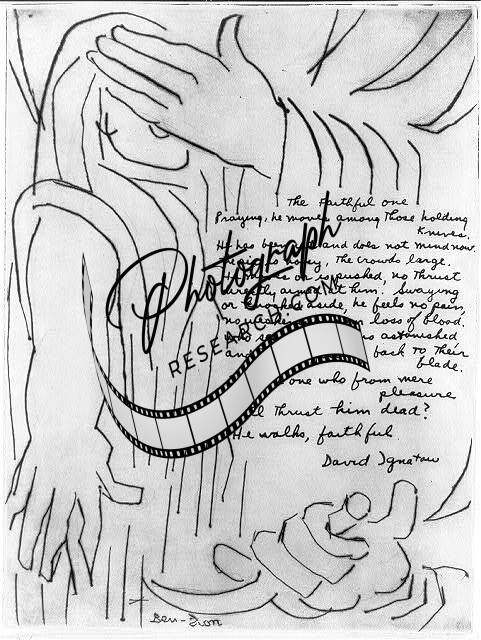 The Faithful one
Praying, he moves among Those holding
Knives.
He has been and does not mind now.
noisy, The crowds large.
He or is pushed, no Thrust
directly aimed at him. Swaying
or knocked aside, he feels no pain,
no loss of blood.
astonished
and back To Their
blade.
one who from mere
pleasure
Thrust him dead?
He walks, faithful.
David Ignatow
Photograph
RESEARCH.COM
Ben-Zion